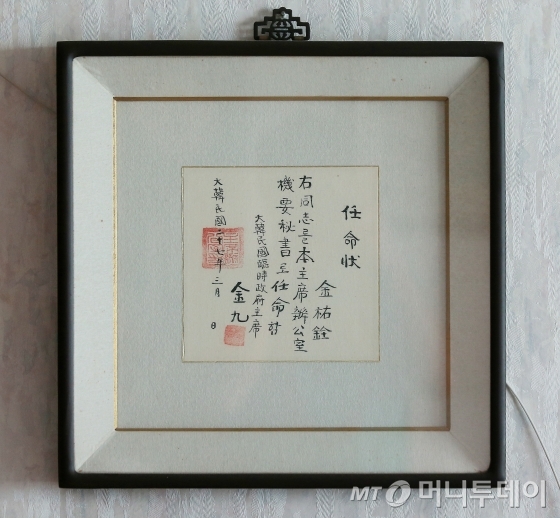 任命狀
金祐銓
右同志를本主席辦公室
機要秘書로任命함
大韓民國臨時政府主席
金九
大韓民國二十七年三月 日
MT 머니투데이